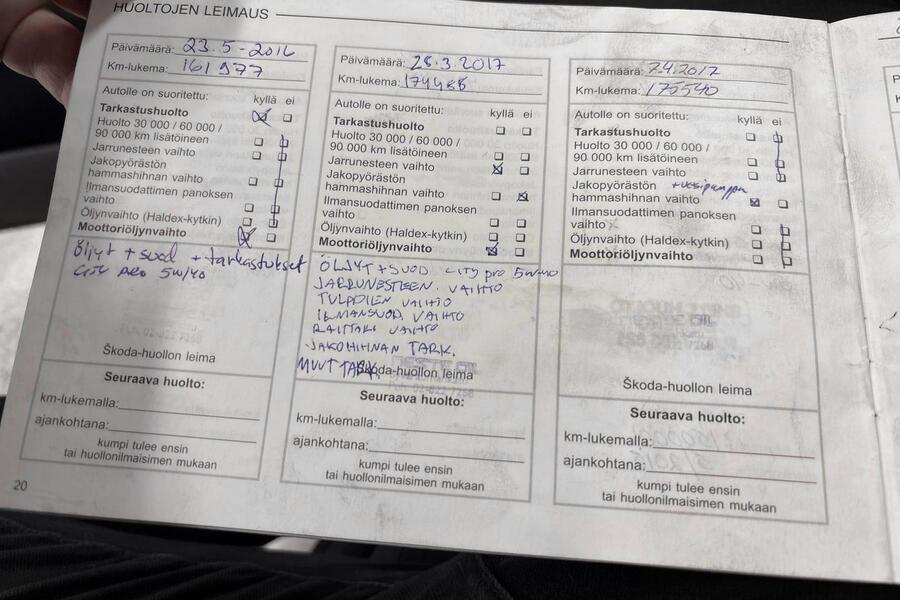 HUOLTOJEN LEIMAUS
Päivämäärä: 23.5-2016
Km-lukema: 161977
Autolle on suoritettu: kyllä ei
Tarkastushuolto
Huolto 30 000 / 60 000 /
90 000 km lisätöineen
Jarrunesteen vaihto
Jakopyörästön
hammashihnan vaihto
Ilmansuodattimen panoksen
vaihto
Öljynvaihto (Haldex-kytkin)
Moottoriöljynvaihto
Öljyt + suod + tarkastukset
city pro 5w/40
Škoda-huollon leima
Seuraava huolto:
km-lukemalla:
ajankohtana:
kumpi tulee ensin
tai huollonilmaisimen mukaan
20
Päivämäärä: 28.3.2017
Km-lukema: 174488
Autolle on suoritettu: kyllä ei
Tarkastushuolto
Huolto 30 000 / 60 000 /
90 000 km lisätöineen
Jarrunesteen vaihto
Jakopyörästön
hammashihnan vaihto
Ilmansuodattimen panoksen
vaihto
Öljynvaihto (Haldex-kytkin)
Moottoriöljynvaihto
ÖLJYT + SUOD CITY pro 5w-40
JARRUNESTEEN. VAIHTO
TULPPIEN VAIHTO
ILMANSUOD. VAIHTO
RAITTAKI VAIHTO
JAKOHIHNAN TARK.
MUUT TARK.
Škoda-huollon leima
Seuraava huolto:
km-lukemalla:
ajankohtana:
kumpi tulee ensin
tai huollonilmaisimen mukaan
Päivämäärä: 7.4.2017
Km-lukema: 175540
Autolle on suoritettu: kyllä ei
Tarkastushuolto
Huolto 30 000 / 60 000 /
90 000 km lisätöineen
Jarrunesteen vaihto
Jakopyörästön + vesipumppu
hammashihnan vaihto
Ilmansuodattimen panoksen
vaihto
Öljynvaihto (Haldex-kytkin)
Moottoriöljynvaihto
Škoda-huollon leima
Seuraava huolto:
km-lukemalla:
ajankohtana:
kumpi tulee ensin
tai huollonilmaisimen mukaan